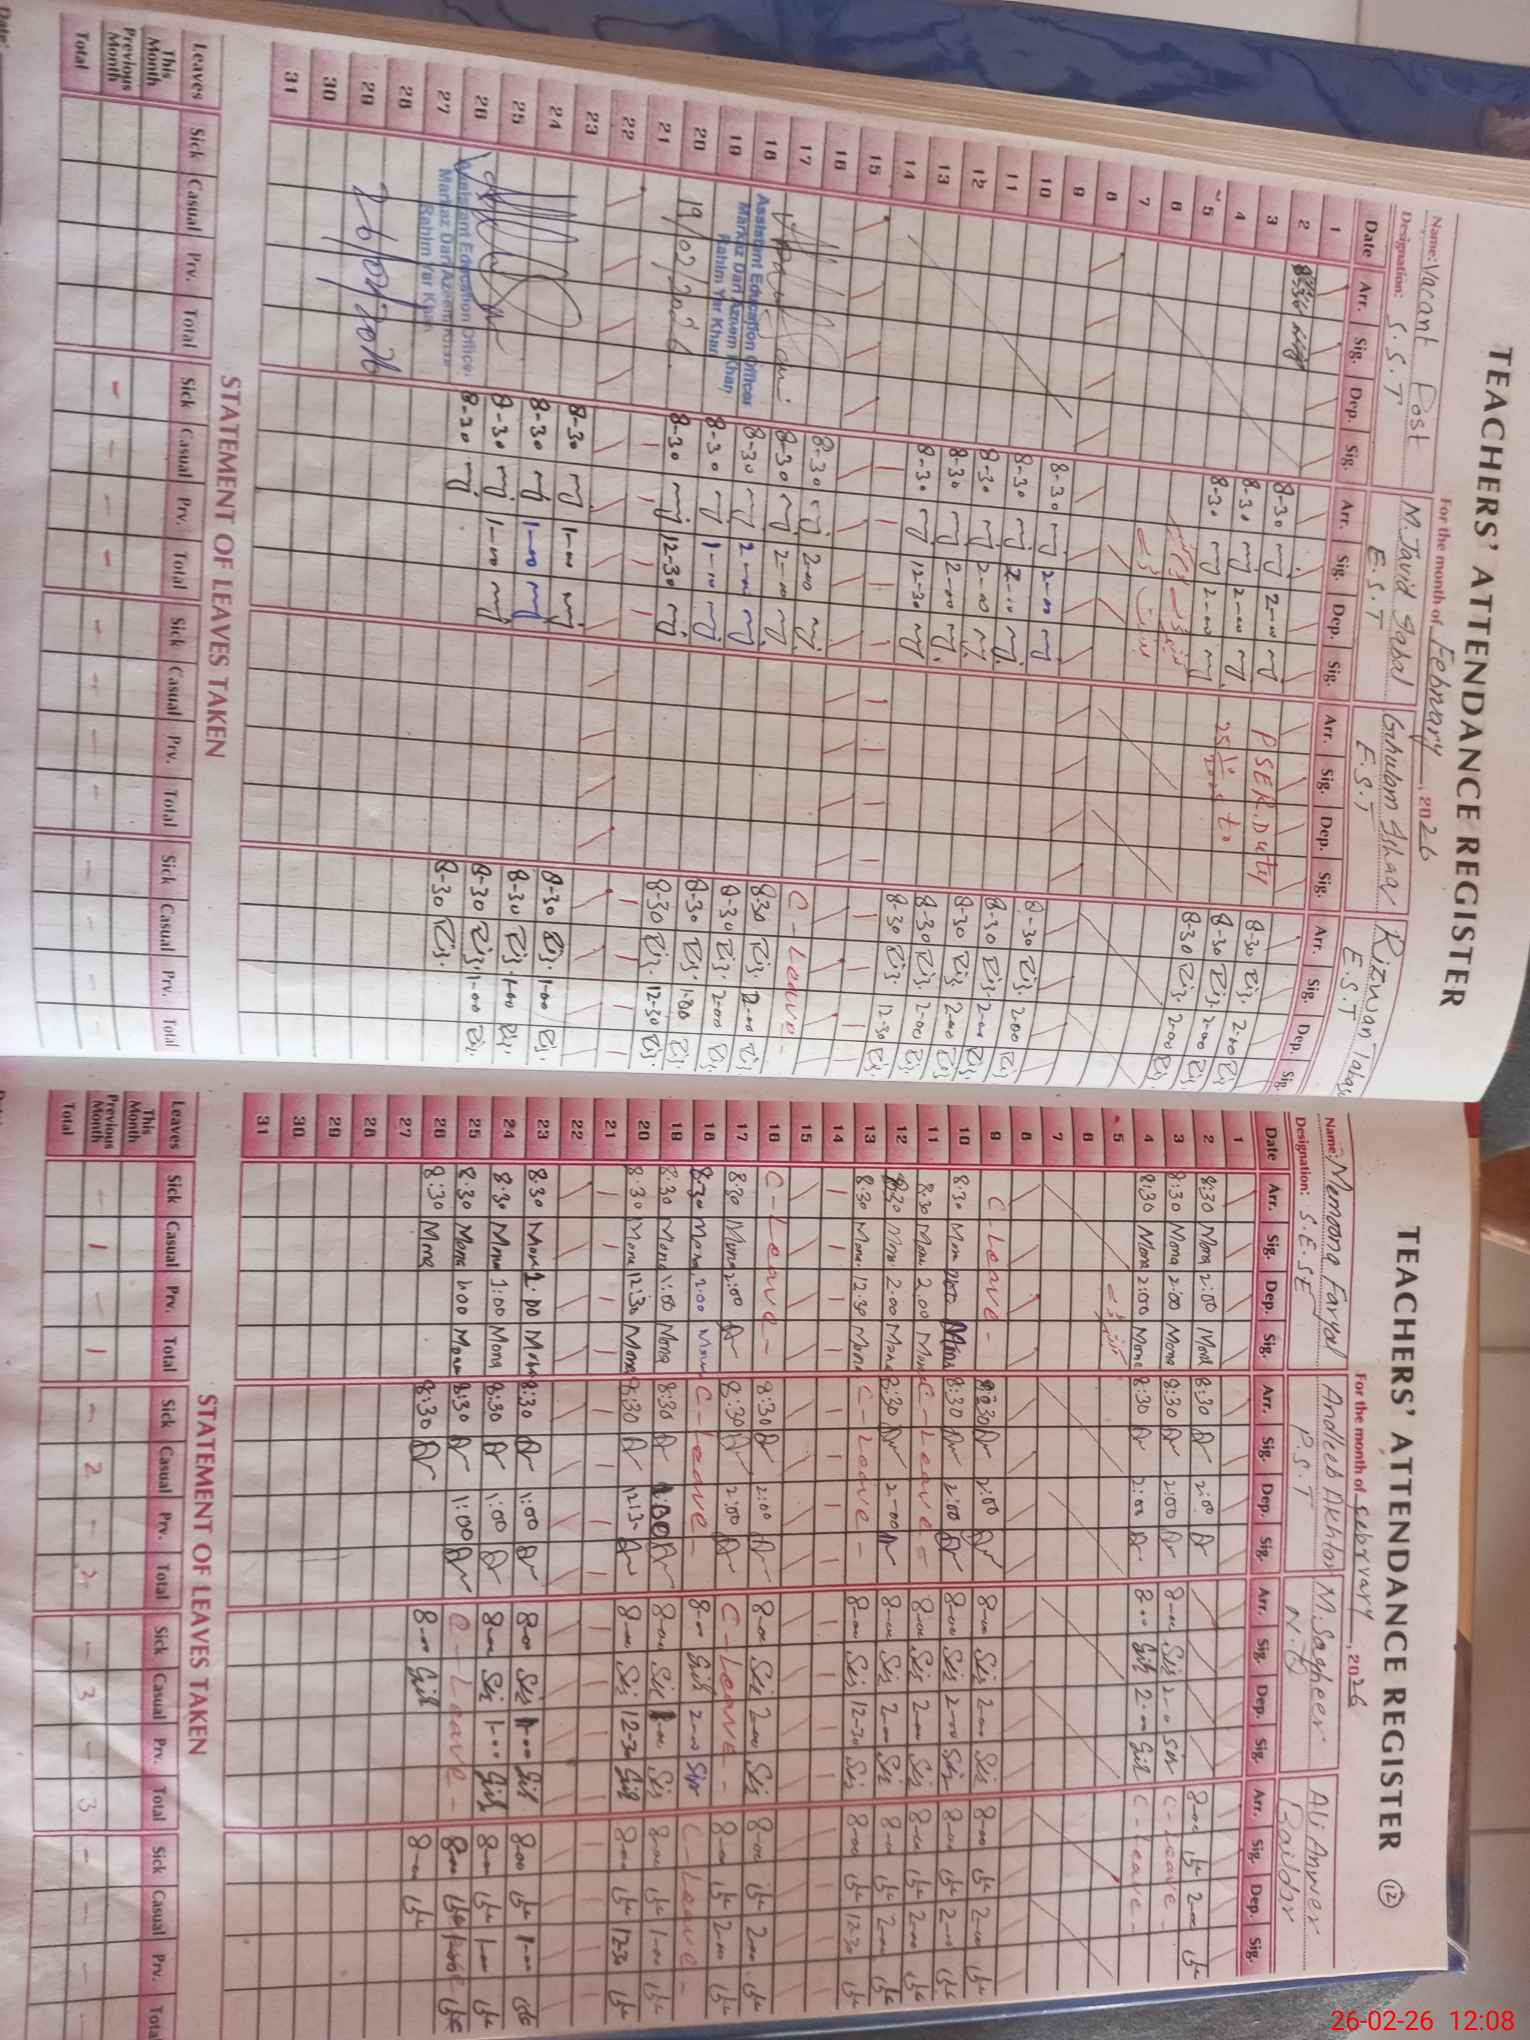 TEACHERS' ATTENDANCE REGISTER
For the month of February, 2026
Name: Vacant Post
M. Javid Iqbal
Ghulam Ishaq
Rizwan Tabas
Designation: S.S.T
E.S.T
E.S.T
E.S.T
Date Arr. Sig. Dep. Sig. Arr. Sig. Dep. Sig. Arr. Sig. Dep. Sig. Arr. Sig. Dep. Sig.
1
2
3 8-30 2-00 PSER. Duty 8-30 2-00
4 8-30 2-00 8-30 2-00
5 8-30 2-00 8-30 2-00
6
7
8
9
10 8-30 2-00 8-30 2-00
11 8-30 2-00 8-30 2-00
12 8-30 2-00 8-30 2-00
13 8-30 2-00 8-30 2-00
14 8-30 12-30 8-30 12-30
15
16
17 8-30 2-00 C-Leave-
18 8-30 2-00 8-30 2-00
19 8-30 2-00 8-30 2-00
20 8-30 1-00 8-30 1-00
21 8-30 12-30 8-30 12-30
22
23
24 8-30 1-00 8-30 1-00
25 8-30 1-00 8-30 1-00
26 8-30 1-00 8-30 1-00
27 8-30 8-30
28
29
30
31
Assistant Education Officer
Markaz Dari Azeem Khan
Rahim Yar Khan
19/02/2026
Assistant Education Officer
Markaz Dari Azeem Khan
Rahim Yar Khan
26/02/2026
STATEMENT OF LEAVES TAKEN
Leaves Sick Casual Prv. Total Sick Casual Prv. Total Sick Casual Prv. Total Sick Casual Prv. Total
This Month
Previous Month - - - - - - - - - - - -
Total
TEACHERS' ATTENDANCE REGISTER 12
For the month of Febrvary, 2026
Name: Memoona Faryal
Andleeb Akhtar
M. Sagheer
Ali Anwer
Designation: S.E.SE
P.S.T
N.Q
Baildar
Date Arr. Sig. Dep. Sig. Arr. Sig. Dep. Sig. Arr. Sig. Dep. Sig. Arr. Sig. Dep. Sig.
1
2 8:30 Mona 2:00 Mona 8:30 2:00 8-00 2-00
3 8:30 Mona 2:00 Mona 8:30 2:00 8-00 2-00 C-Leave-
4 8:30 Mona 2:00 Mona 8:30 2:00 8-00 2-00 C-Leave-
5
6
7
8
9 C-Leave- 8:30 2:00 8-00 2-00 8-00 2-00
10 8:30 Mona 2:00 Mona 8:30 2:00 8-00 2-00 8-00 2-00
11 8:30 Mona 2.00 Mona C-Leave- 8-00 2-00 8-00 2-00
12 8:30 Mona 2.00 Mona 8:30 2-00 8-00 2-00 8-00 2-00
13 8:30 Mona 12.30 Mona C-Leave- 8-00 12-30 8-00 12-30
14
15
16 C-Leave- 8:30 2:00 8-00 2-00 8-00 2-00
17 8:30 Mona 2:00 8:30 2:00 C-Leave- 8-00 2-00
18 8:30 Mona 2:00 Mona C-Leave- 8-00 2-00 C-Leave-
19 8:30 Mona 1:00 Mona 8:30 1:00 8-00 1-00 8-00 1-00
20 8:30 Mona 12:30 Mona 8:30 12:30 8-00 12-30 8-00 12-30
21
22
23 8:30 Mona 1:00 Mona 8:30 1:00 8-00 1-00 8-00 1-00
24 8:30 Mona 1:00 Mona 8:30 1:00 8-00 1-00 8-00 1-00
25 8:30 Mona 1:00 Mona 8:30 1:00 C-Leave- 8-00 1-00
26 8:30 Mona 8:30 8-00 8-00
27
28
29
30
31
STATEMENT OF LEAVES TAKEN
Leaves Sick Casual Prv. Total Sick Casual Prv. Total Sick Casual Prv. Total Sick Casual Prv. Total
This Month
Previous Month - 1 - 1 - 2 - 2 - 3 - 3 - - - -
Total
26-02-26 12:08